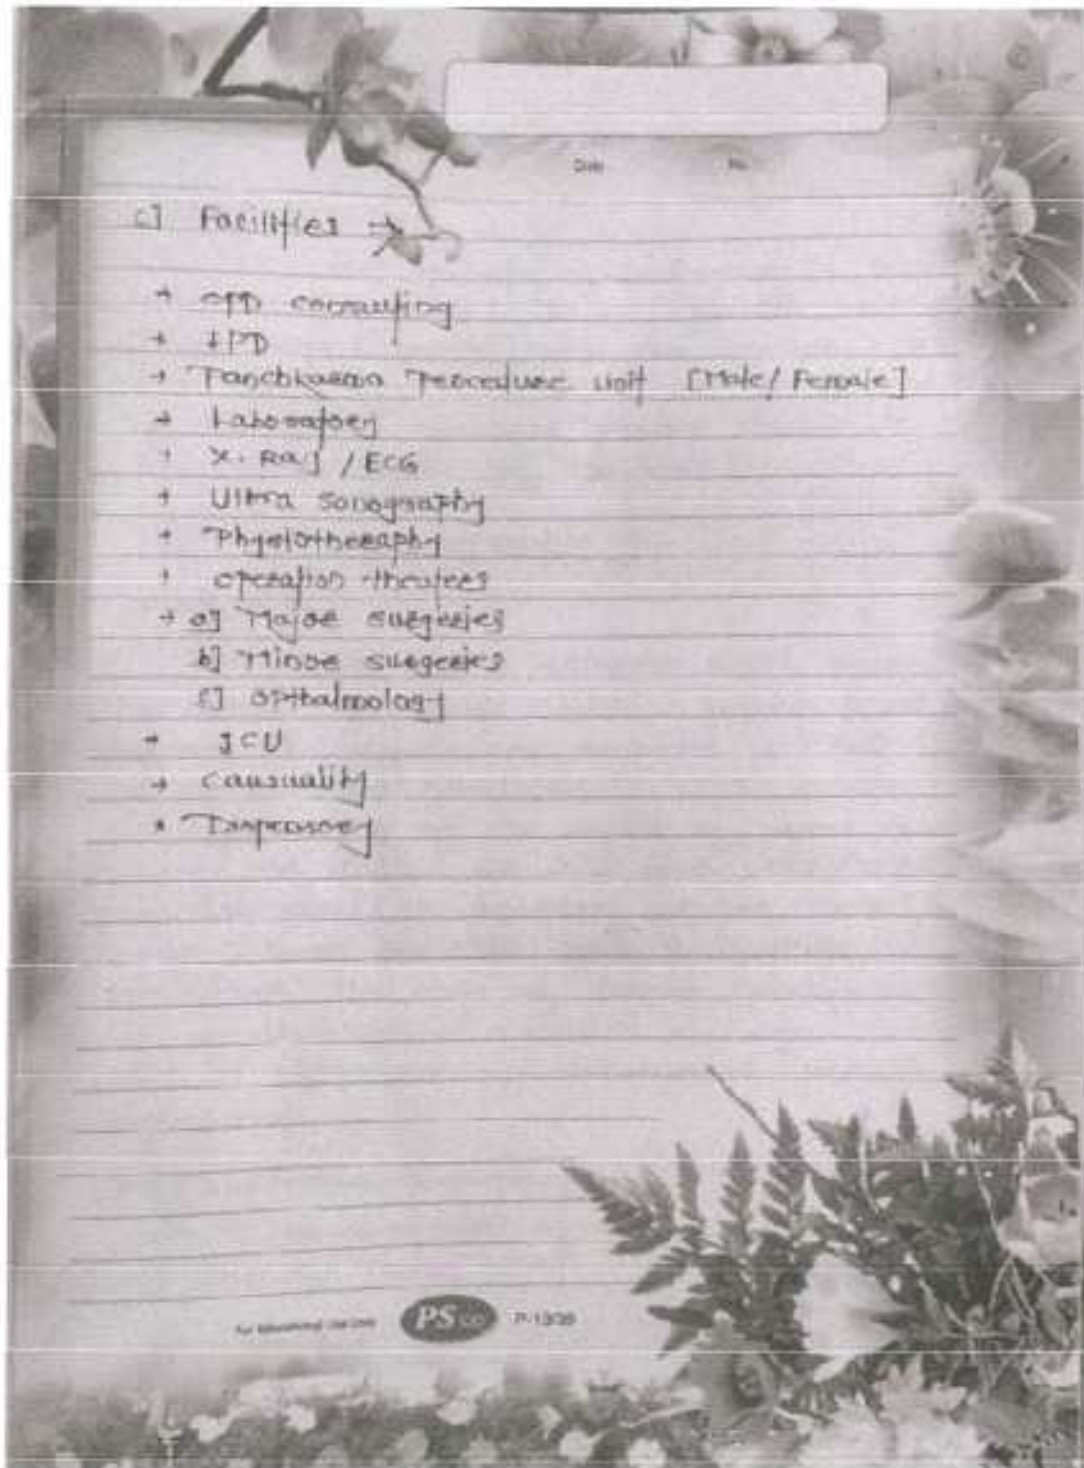 Date No.
c] Facilities →
→ OPD consulting
→ IPD
→ Panchkarma Procedure unit [Male/Female]
→ Laboratory
→ X.Ray / ECG
→ Ultra sonography
→ Physiotheraphy
→ operation theaters
→ a] Major surgeries
b] Minor surgeries
c] opthalmology
→ ICU
→ causuality
→ Dispensory
For Educational Use Only PS P-1320